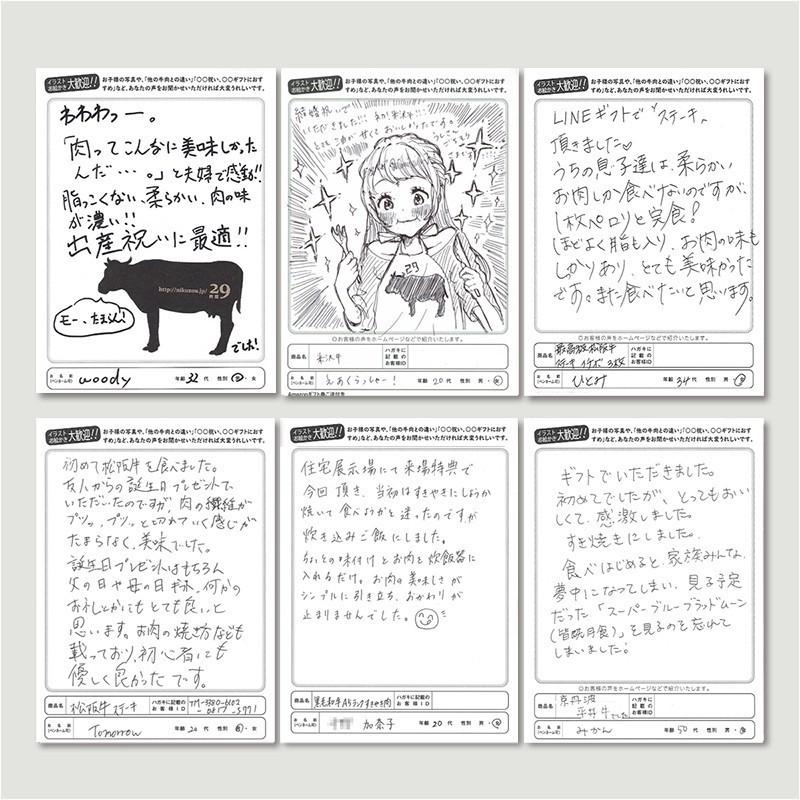 イラスト
お絵かき 大歓迎!!
お子様の写真や、「他の牛肉との違い」「〇〇祝い、〇〇ギフトにおす
すめ」など、あなたの声をお聞かせいただければ大変うれしいです。
わわわっー。
「肉ってこんなに美味しかった
んだ…。」と夫婦で感動!!
脂っこくない、柔らかい、肉の味
が濃い!!
出産祝いに最適!!
http://nikuzou.jp/ 29
モー、たまらん!
でした!
お名前
(ペンネーム可)
woody
年齢 32 代 性別 男・女
イラスト
お絵かき 大歓迎!!
お子様の写真や、「他の牛肉との違い」「〇〇祝い、〇〇ギフトにおす
すめ」など、あなたの声をお聞かせいただければ大変うれしいです。
結婚祝いで
いただきました!!
とても油が甘くておいしかったです。
29
◎お客様の声をホームページなどで紹介いたします。
商品名 米沢牛
ハガキに
記載の
お客様ID
お名前
(ペンネーム可)
えあくらっしゃー!
年齢 20 代 性別 男・女
イラスト
お絵かき 大歓迎!!
お子様の写真や、「他の牛肉との違い」「〇〇祝い、〇〇ギフトにおす
すめ」など、あなたの声をお聞かせいただければ大変うれしいです。
LINEギフトで"ステーキ"
頂きました♡
うちの息子達は、柔らかい
お肉しか食べないのですが、
1枚ペロリと完食!
ほどよく脂も入り、お肉の味も
しっかりあり、とても美味かった
です。また食べたいと思います。
◎お客様の声をホームページなどで紹介いたします。
商品名 最高級松阪牛
ステーキ イチボ 3枚
ハガキに
記載の
お客様ID
お名前
(ペンネーム可)
ひとみ
年齢 34 代 性別 男・女
イラスト
お絵かき 大歓迎!!
お子様の写真や、「他の牛肉との違い」「〇〇祝い、〇〇ギフトにおす
すめ」など、あなたの声をお聞かせいただければ大変うれしいです。
初めて松阪牛を食べました。
友人からの誕生日プレゼントで
いただいたのですが、肉の繊維が
プツッ、プツッと切れていく感じが
たまらなく、美味でした。
誕生日プレゼントはもちろん
父の日や母の日ギフト、何かの
お礼とかにもとても良いと
思います。お肉の焼き方なども
載っており、初心者にも
優しく良かったです。
商品名 松阪牛ステーキ
ハガキに記載の
お客様ID
お名前
(ペンネーム可)
Tomorrow
年齢 20 代 性別 男・女
イラスト
お絵かき 大歓迎!!
お子様の写真や、「他の牛肉との違い」「〇〇祝い、〇〇ギフトにおす
すめ」など、あなたの声をお聞かせいただければ大変うれしいです。
住宅展示場にて来場特典で
今回頂き、当初はすきやきにしようか
焼いて食べようかと迷ったのですが
炊き込みご飯にしました。
ちょっとの味付けとお肉を炊飯器に
入れるだけ。お肉の美味しさが
シンプルに引き立ち、おかわりが
止まりませんでした。
商品名 黒毛和牛A5ランクすきやき肉
ハガキに記載の
お客様ID
お名前
(ペンネーム可)
加奈子
年齢 20 代 性別 男・女
イラスト
お絵かき 大歓迎!!
お子様の写真や、「他の牛肉との違い」「〇〇祝い、〇〇ギフトにおす
すめ」など、あなたの声をお聞かせいただければ大変うれしいです。
ギフトでいただきました。
初めてでしたが、とってもおいし
しくて、感激しました。
すき焼きにしました。
食べはじめると、家族みんな、
夢中になってしまい、見る予定
だった「スーパーブルーブラッドムーン
(皆既月食)」を見るのを忘れて
しまいました!
◎お客様の声をホームページなどで紹介いたします。
商品名 京丹波
平井牛でした
ハガキに
記載の
お客様ID
お名前
(ペンネーム可)
みかん
年齢 50 代 性別 男・女